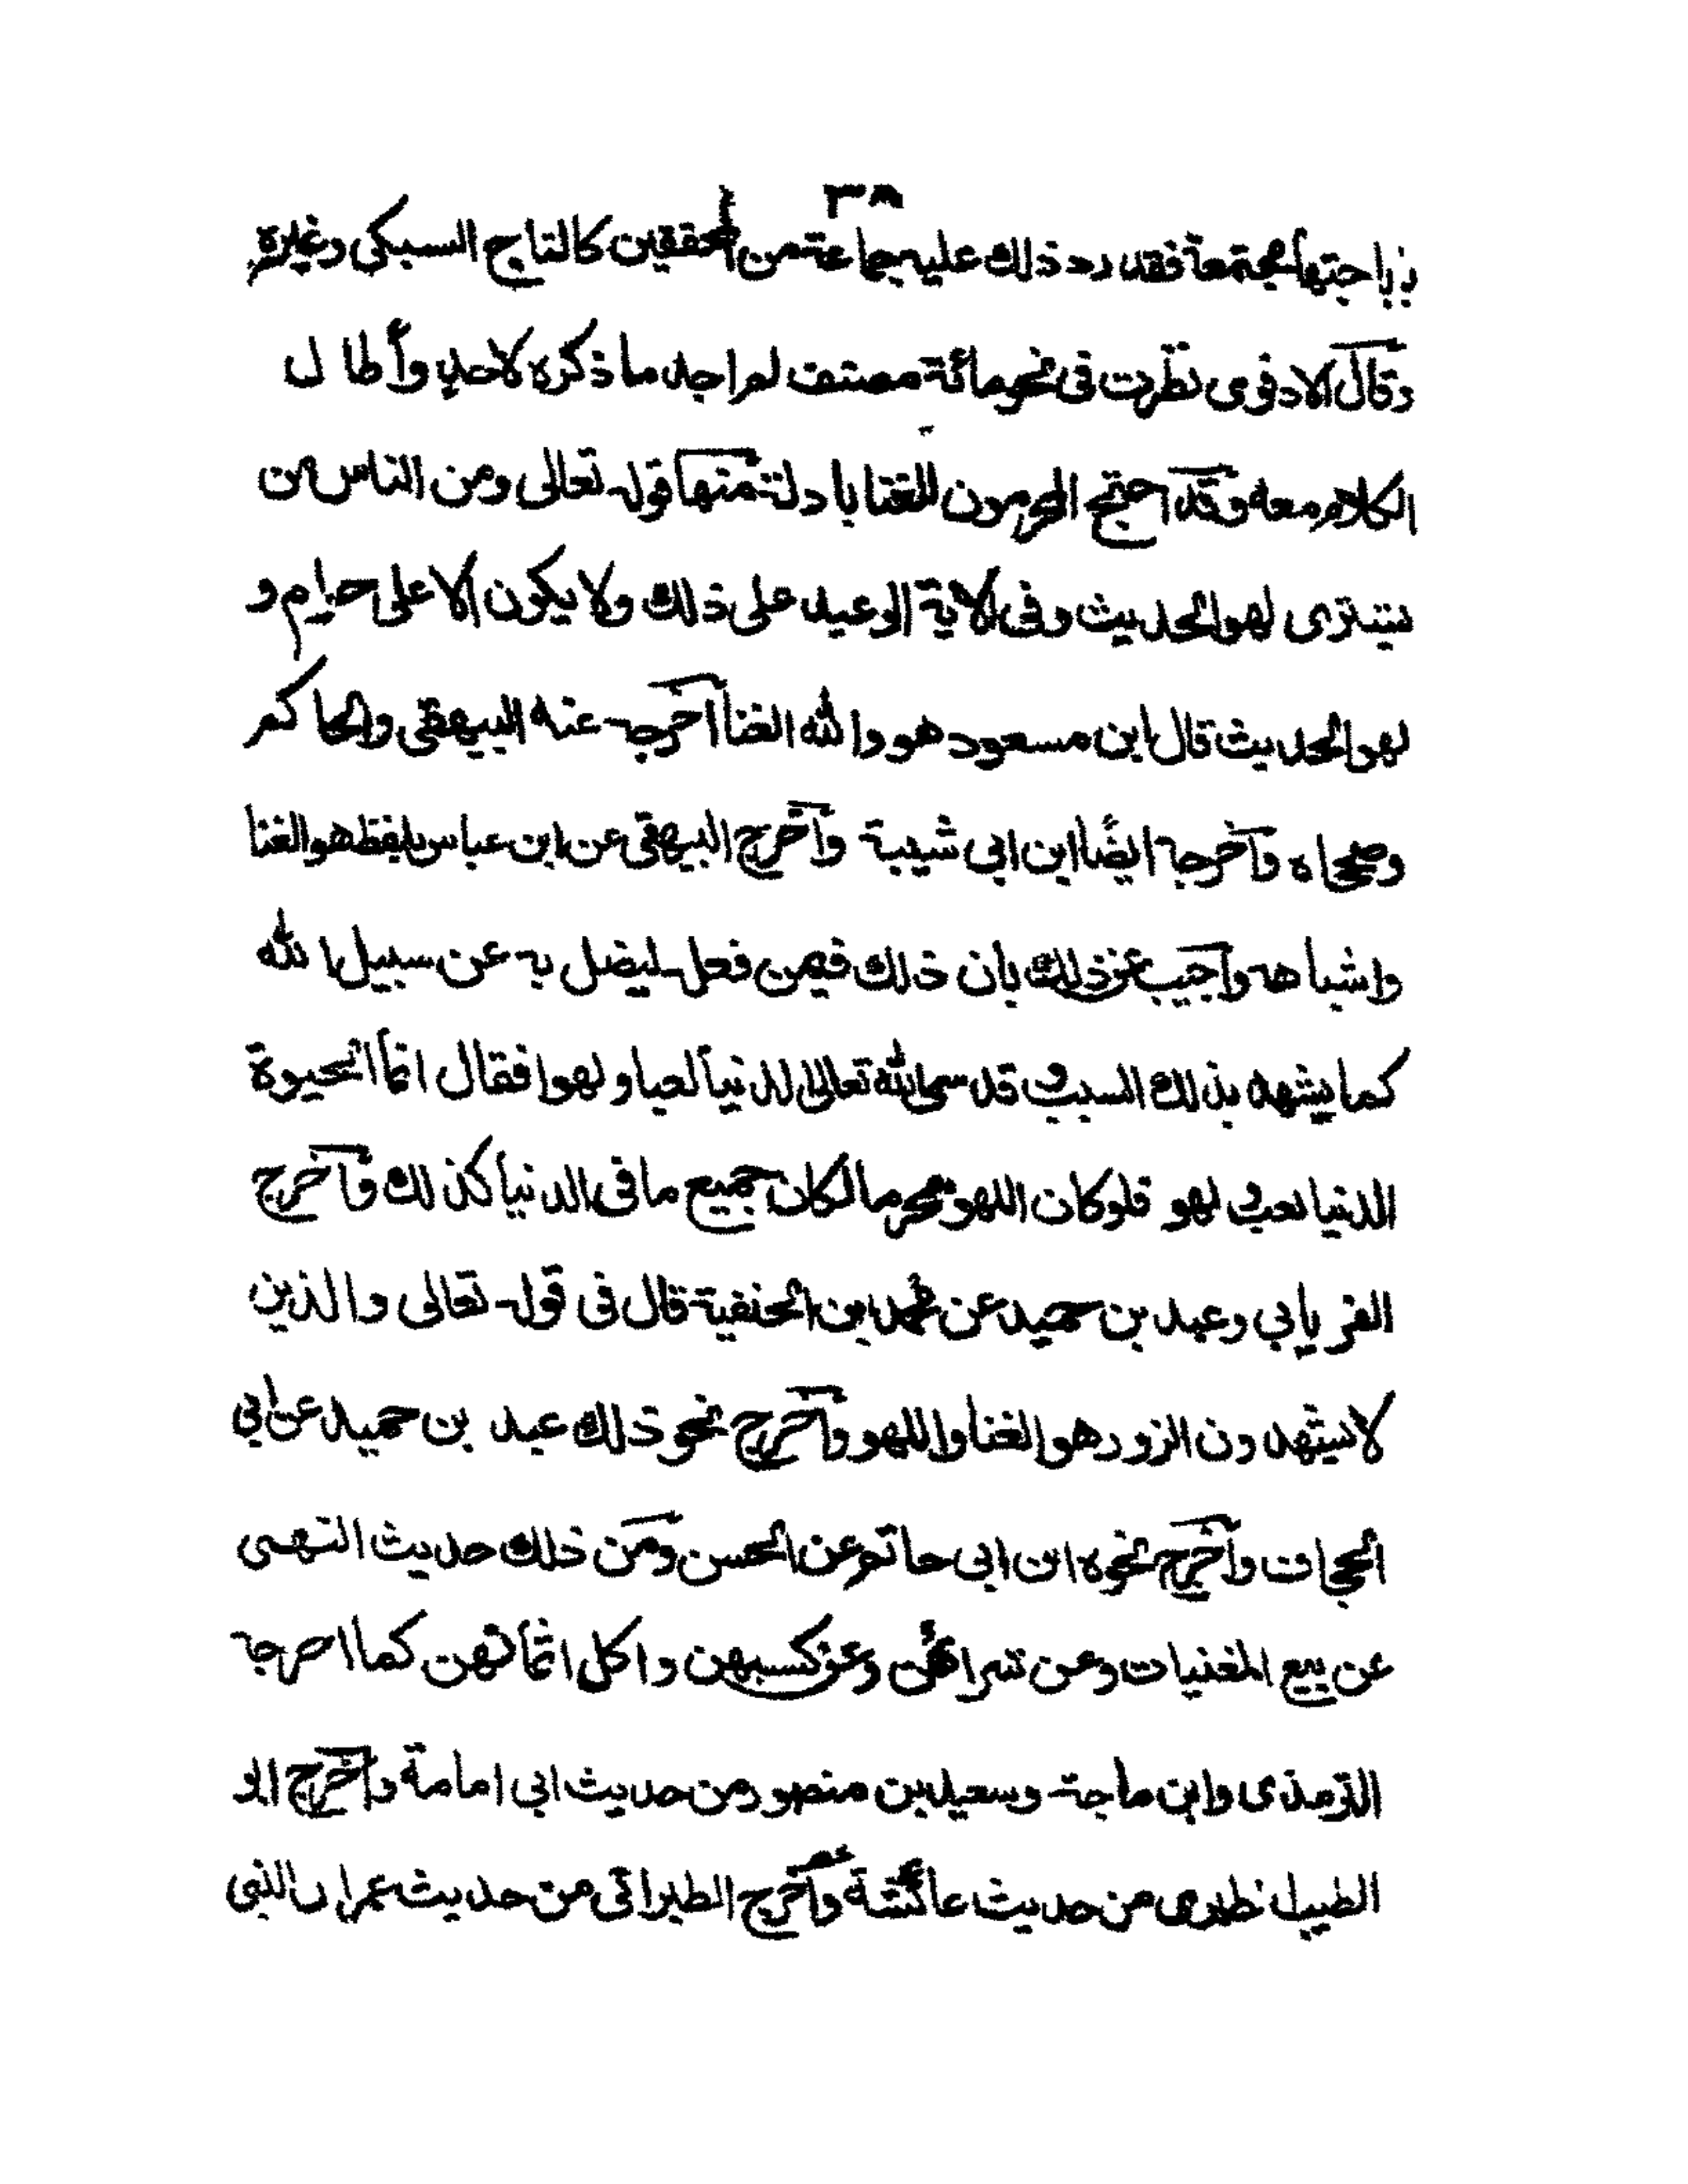 ٣٨
باحتها مجتمعة فقد رد ذلك عليه جماعة من المحققين كالتاج السبكي وغيره
وقال الادفوى نظرت فى نحو مائة مصنف لم اجد ما ذكره لاحد وأطال
الكلام معه وقد احتج المحرمون للغنا بادلة منها قوله تعالى ومن الناس من
يشترى لهو الحديث وفى الاية الوعيد على ذلك ولا يكون الا على حرام و
لهو الحديث قال ابن مسعود هو والله الغنا اخرجه عنه البيهقى والحاكم
وصححاه واخرجه ايضًا ابن ابى شيبة واخرج البيهقى عن ابن عباس بلفظ هو الغنا
واشباهه واجيب عن ذلك بان ذلك فيمن فعله ليضل به عن سبيل الله
كما يشهد بذلك السبب و قد سمى الله تعالى الدنيا لعبا و لهوا فقال انما الحيوة
الدنيا لعب و لهو فلو كان اللهو محرما لكان جميع ما فى الدنيا كذلك واخرج
الفريابي وعبد بن حميد عن محمد ابن الحنفية قال فى قوله تعالى والذين
لا يشهدون الزور هو الغنا واللهو واخرج نحو ذلك عبد بن حميد عن ابي
الحجاف واخرج نحوه ابن ابى حاتم عن الحسن ومن ذلك حديث النهى
عن بيع المغنيات وعن شرائهن وعن كسبهن واكل اثمانهن كما اخرجه
الترمذى وابن ماجة وسعيد بن منصور من حديث ابي امامة واخرج ابو
الطيب الطبرى من حديث عائشة واخرج الطبرانى من حديث عمر ان النبى